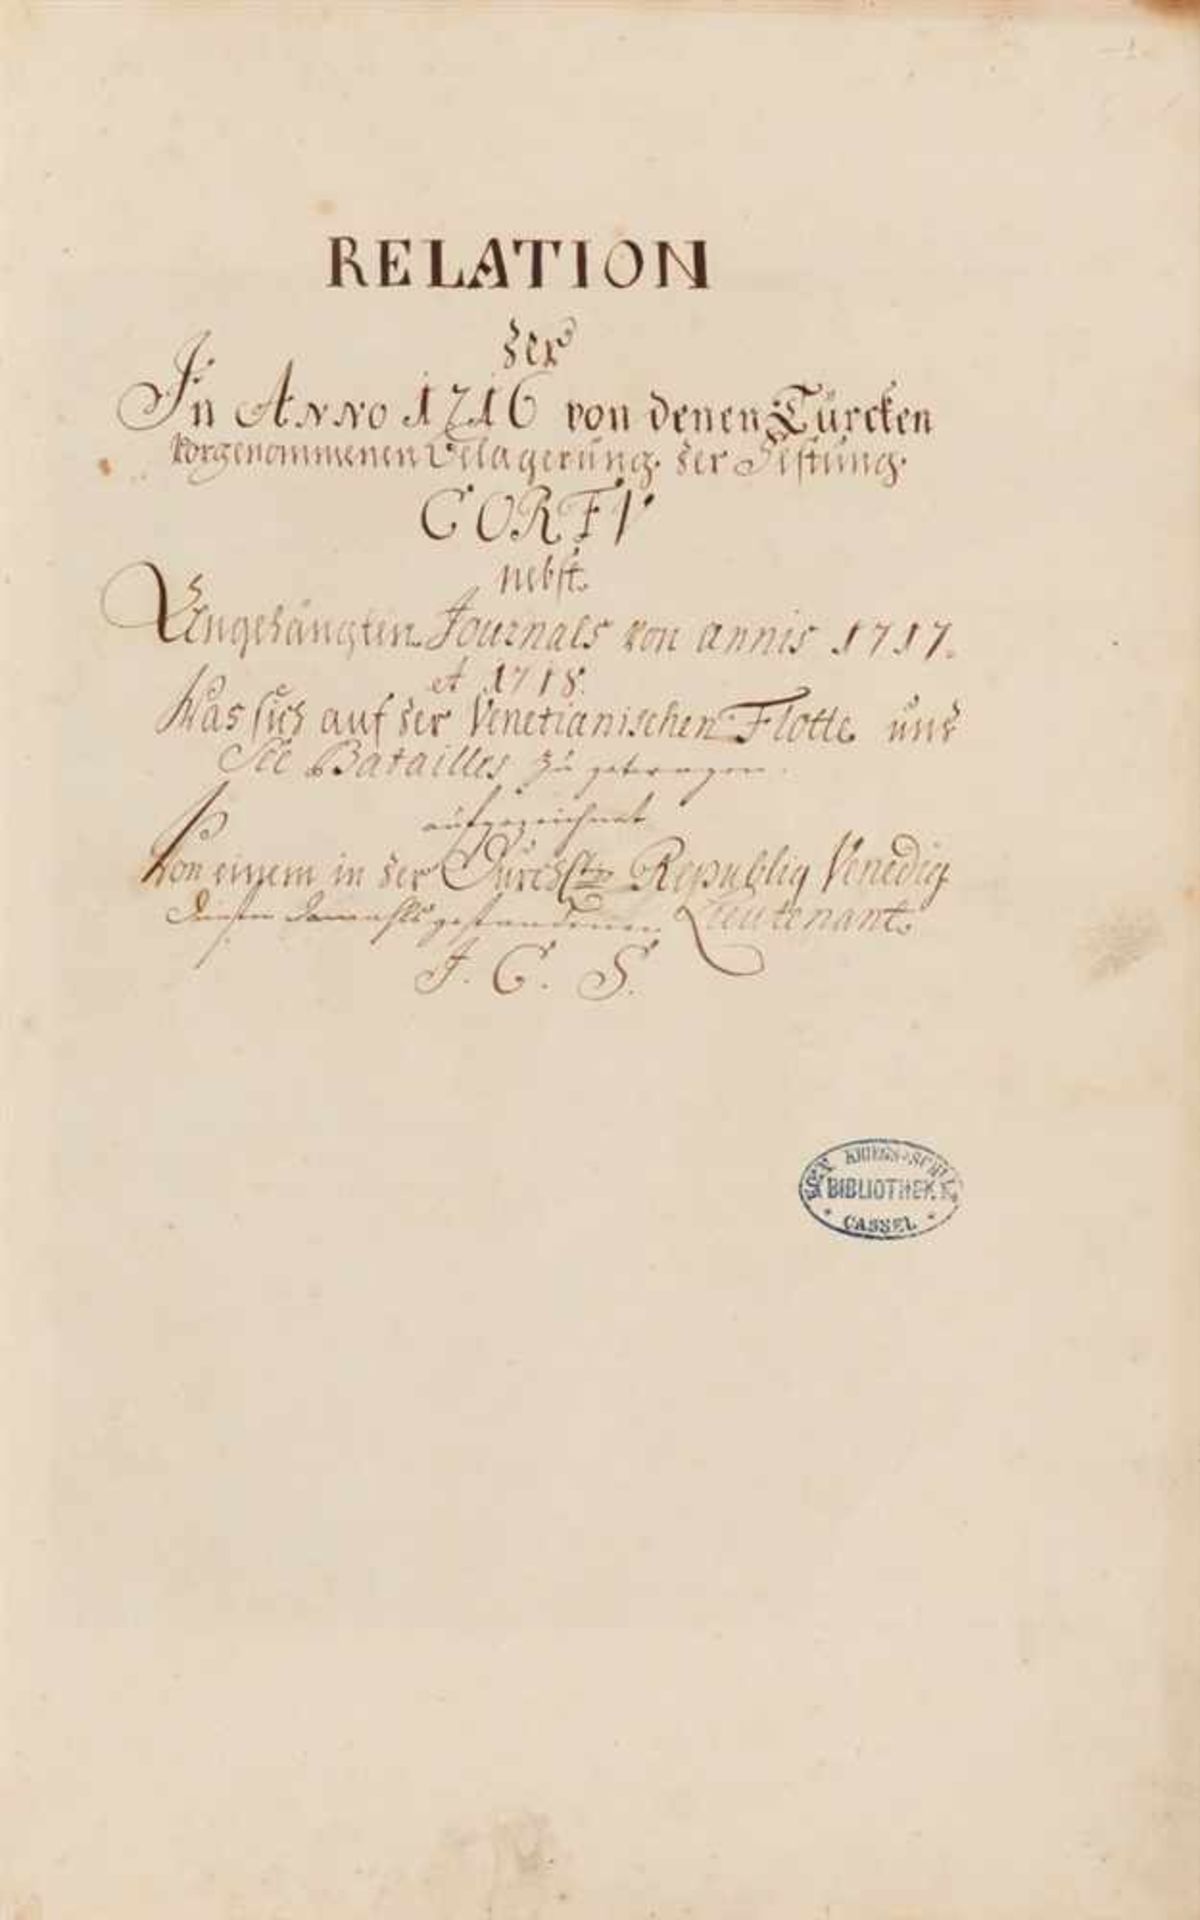 RELATION
der
In Anno 1716 von denen Türcken
vorgenommenen Belagerung der Festung
CORFV
nebst
Angehängten Journals von annis 1717.
et 1718.
Was sich auf der Venetianischen Flotte und
See Batailles zu getragen.
aufgezeichnet
Von einem in der Durchl Republiq Venedig
damahls gestandenen Lieutenant.
J. C. S.
KÖN. KRIEGS-SCHULE
BIBLIOTHEK
CASSEL